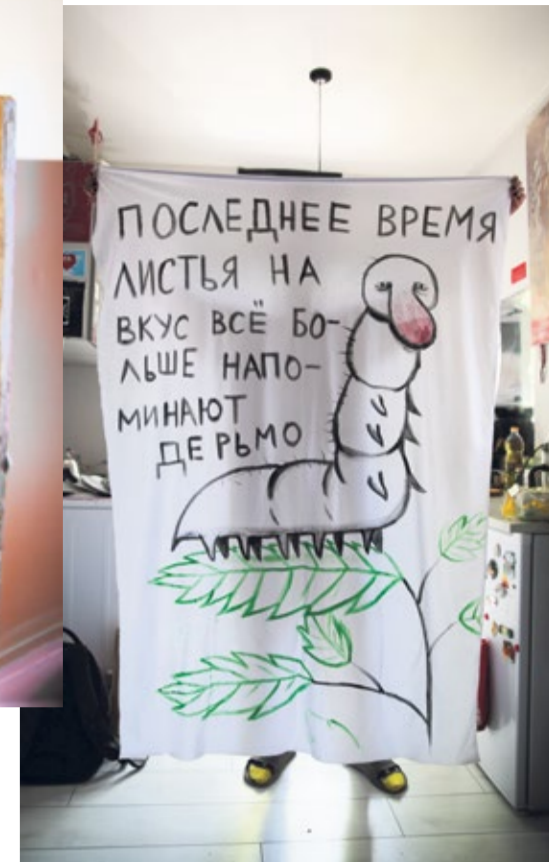 ПОСЛЕДНЕЕ ВРЕМЯ
ЛИСТЬЯ НА
ВКУС ВСЁ БО-
ЛЬШЕ НАПО-
МИНАЮТ
ДЕРЬМО